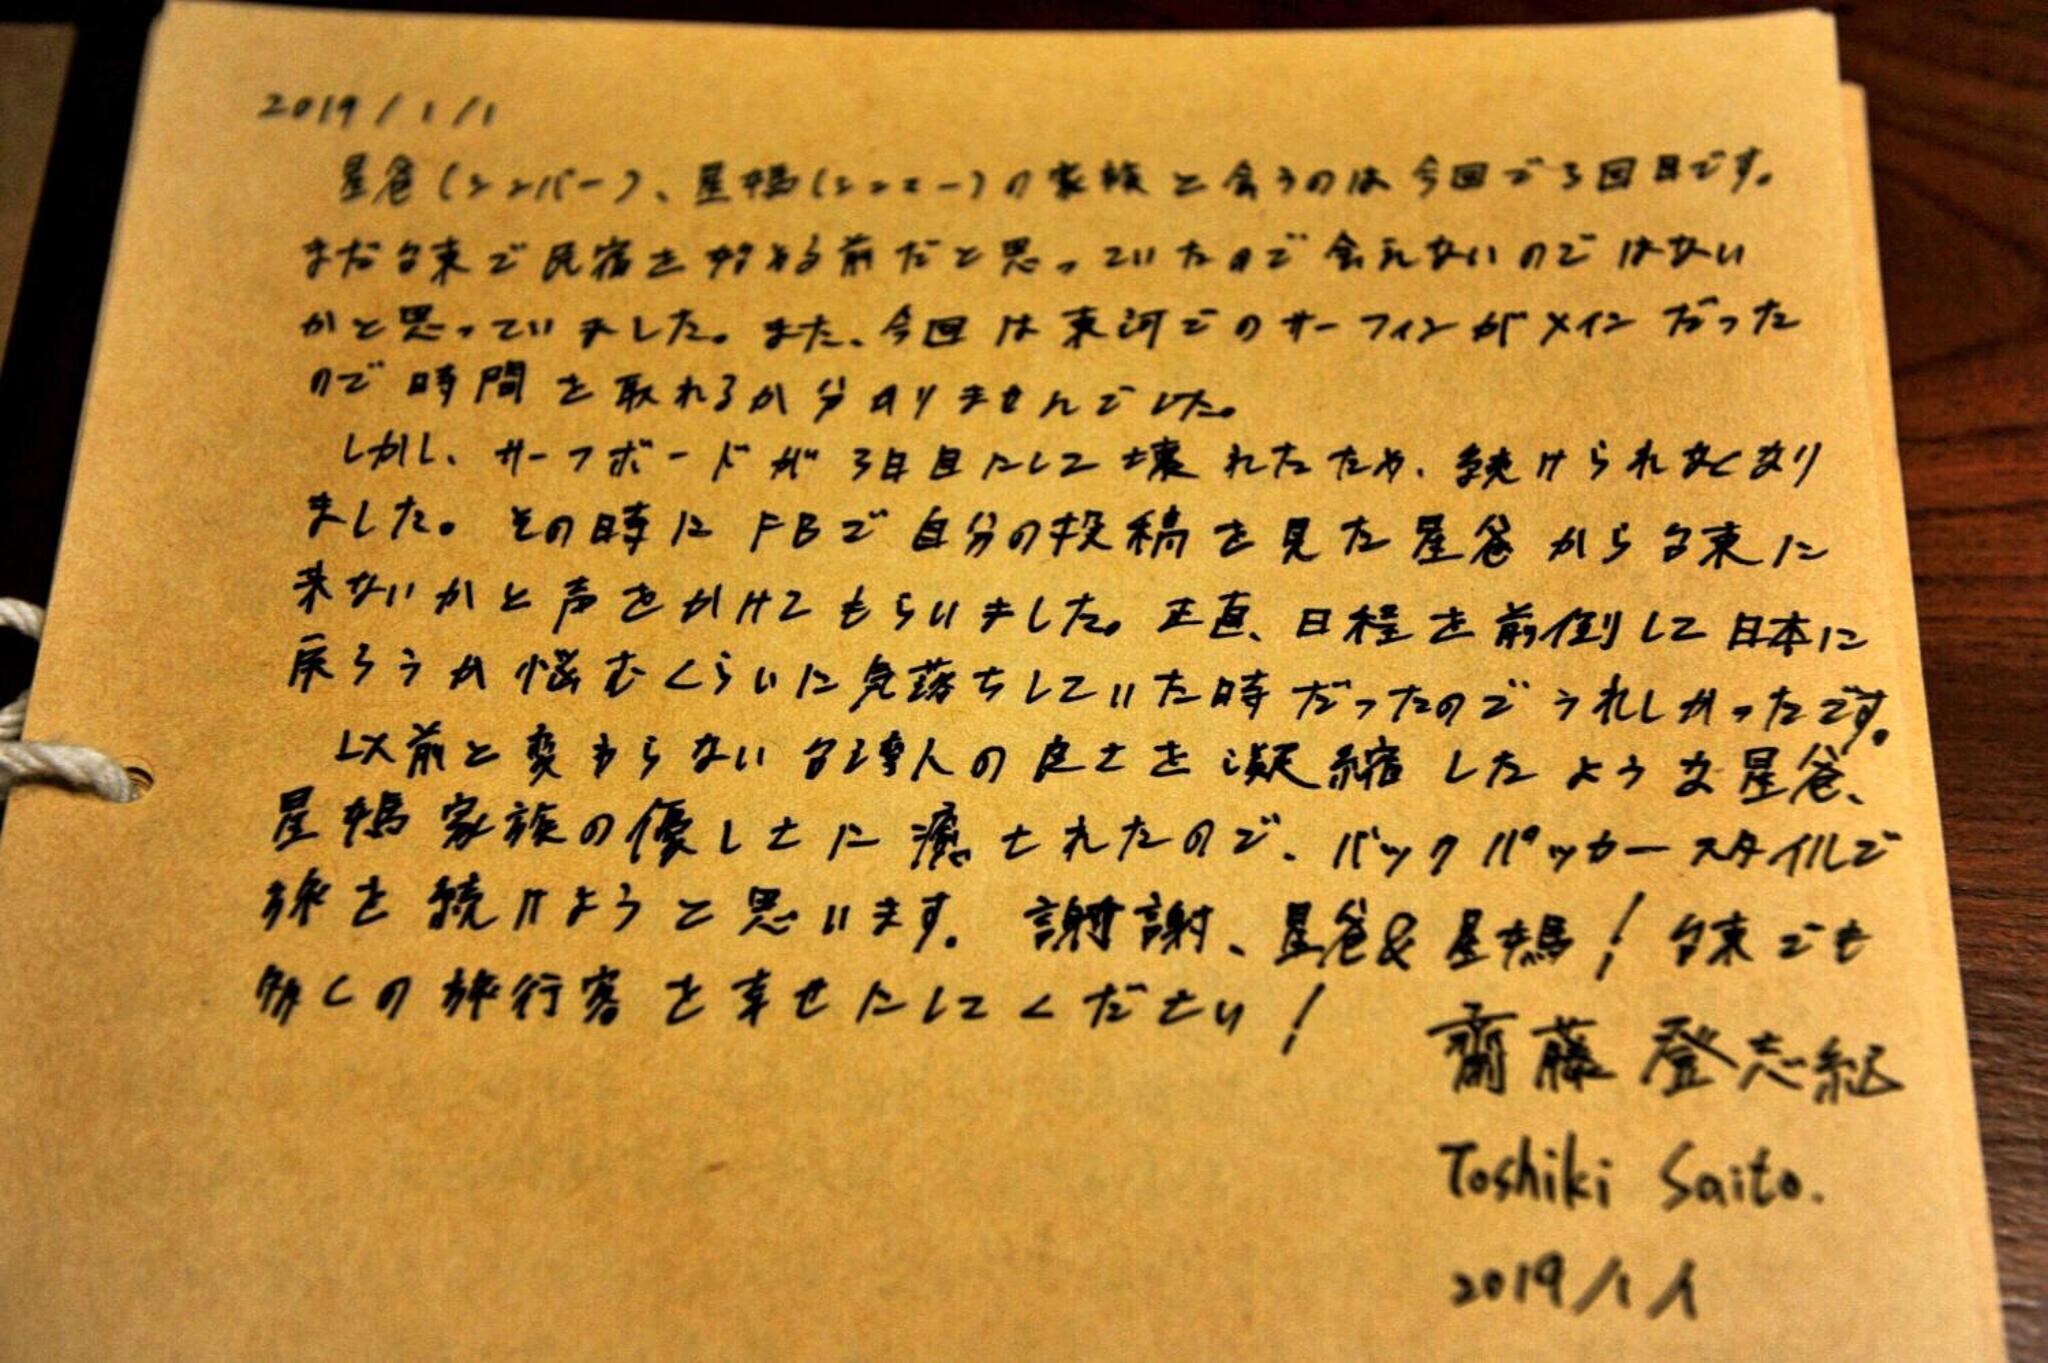 2019/1/1
星爸(シンバー)、星媽(シンマー)の家族と会うのは今回で3回目です。
まだ台東で民宿を始める前だと思っていたので会えないのではない
かと思っていました。また、今回は東河でのサーフィンがメインだった
ので時間を取れるか分りませんでした。
しかし、サーフボードが3日目にして壊れたため、続けられなくなり
ました。その時にFBで自分の投稿を見た星爸から台東に
来ないかと声をかけてもらいました。正直、日程を前倒して日本に
戻ろうか悩むくらいに気落ちしていた時だったのでうれしかったです。
以前と変わらない台湾人の良さを凝縮したような星爸、
星媽家族の優しさに癒されたので、バックパッカースタイルで
旅を続けようと思います。謝謝、星爸&星媽!台東でも
多くの旅行客を幸せにしてください!
齋藤登志紀
Toshiki Saito.
2019/1/1